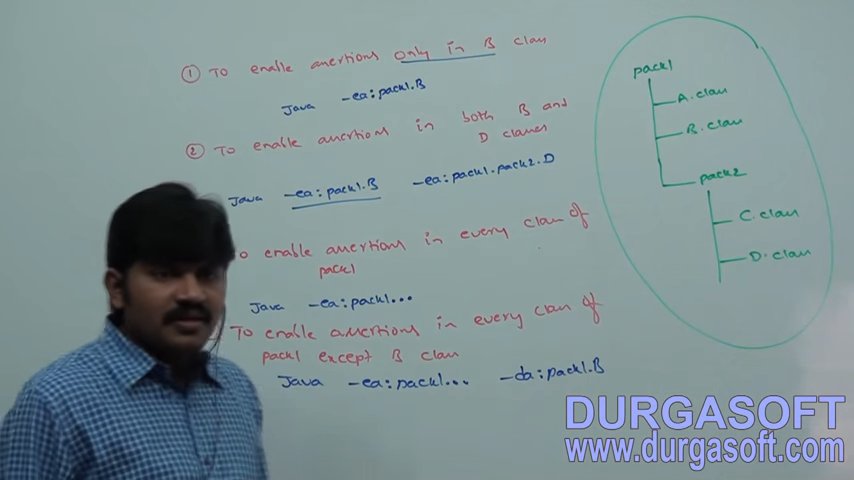 ① To enable assertions only in B class
Java -ea:pack1.B
② To enable assertions in both B and
D classes
Java -ea:pack1.B -ea:pack1.pack2.D
To enable assertions in every class of
pack1
Java -ea:pack1...
To enable assertions in every class of
pack1 except B class
Java -ea:pack1... -da:pack1.B
pack1
A.class
B.class
pack2
C.class
D.class
DURGASOFT
www.durgasoft.com